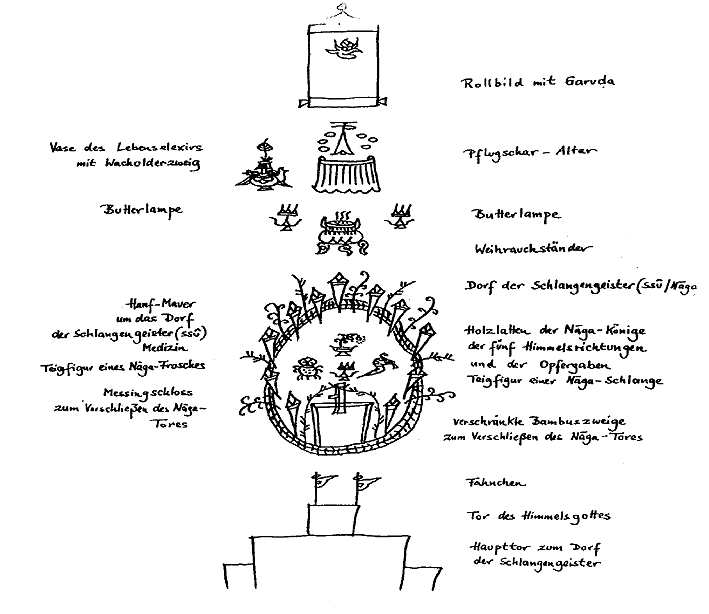 Rollbild mit Garuda
Vase des Lebenselexirs
mit Wacholderzweig
Pflugschar - Altar
Butterlampe
Butterlampe
Weihrauchständer
Dorf der Schlangengeister (ssū/Nāga
Hanf-Mauer
um das Dorf
der Schlangengeister (ssū)
Medizin
Teigfigur eines Nāga-Frosches
Messingschloss
zum Verschließen des Nāga-
Tores
Holzlatten der Nāga-Könige
der fünf Himmelsrichtungen
und der Opfergaben
Teigfigur einer Nāga-Schlange
verschränkte Bambuszweige
zum Verschließen des Nāga-Tores
Fähnchen
Tor des Himmelsgottes
Haupttor zum Dorf
der Schlangengeister